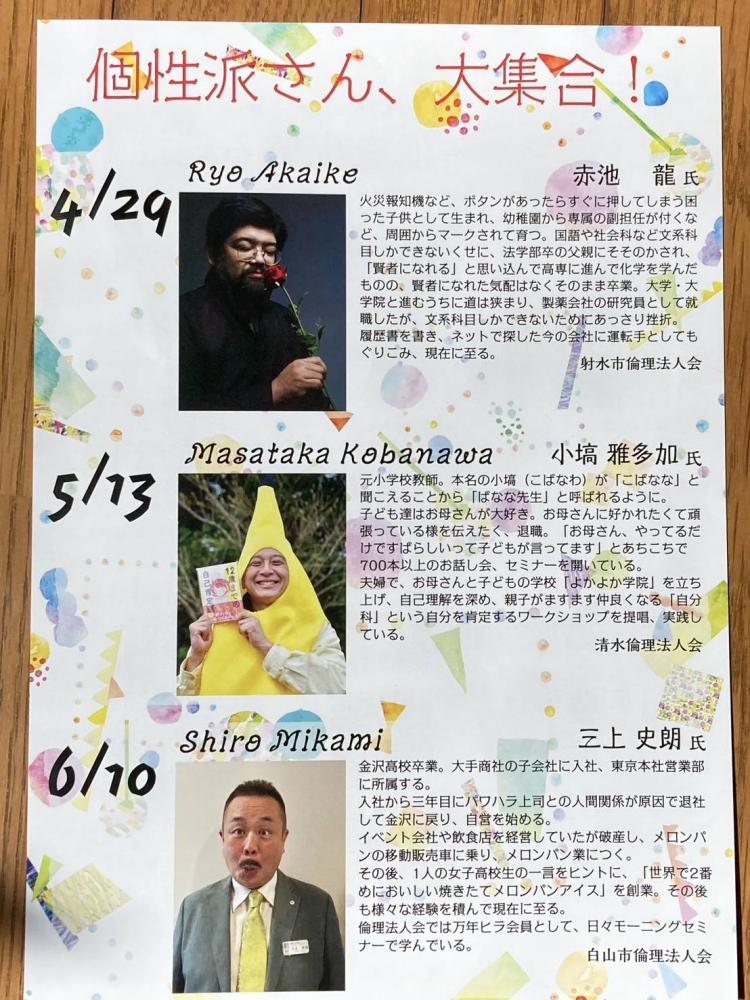 個性派さん、大集合！
4/29
Ryo Akaike
赤池　龍氏
火災報知機など、ボタンがあったらすぐに押してしまう困
った子供として生まれ、幼稚園から専属の副担任が付くな
ど、周囲からマークされて育つ。国語や社会科など文系科
目しかできないくせに、法学部卒の父親にそそのかされ、
「賢者になれる」と思い込んで高専に進んで化学を学んだ
ものの、賢者になれた気配はなくそのまま卒業。大学・大
学院と進むうちに道は狭まり、製薬会社の研究員として就
職したが、文系科目しかできないためにあっさり挫折。
履歴書を書き、ネットで探した今の会社に運転手としても
ぐりこみ、現在に至る。
射水市倫理法人会
5/13
Masataka Kobanawa
小塙 雅多加氏
元小学校教師。本名の小塙（こばなわ）が「こばなな」と
聞こえることから「ばなな先生」と呼ばれるように。
子ども達はお母さんが大好き。お母さんに好かれたくて頑
張っている様を伝えたく、退職。「お母さん、やってるだ
けですばらしいって子どもが言ってます」とあちこちで
700本以上のお話し会、セミナーを開いている。
夫婦で、お母さんと子どもの学校「よかよか学院」を立ち
上げ、自己理解を深め、親子がますます仲良くなる「自分
科」という自分を肯定するワークショップを提唱、実践し
ている。
清水倫理法人会
12歳までの
自己肯定
6/10
Shiro Mikami
三上 史朗氏
金沢高校卒業。大手商社の子会社に入社、東京本社営業部
に所属する。
入社から三年目にパワハラ上司との人間関係が原因で退社
して金沢に戻り、自営を始める。
イベント会社や飲食店を経営していたが破産し、メロンパ
ンの移動販売車に乗り、メロンパン業につく。
その後、1人の女子高校生の一言をヒントに、「世界で2番
めにおいしい焼きたてメロンパンアイス」を創業。その後
も様々な経験を積んで現在に至る。
倫理法人会では万年ヒラ会員として、日々モーニングセミ
ナーで学んでいる。
白山市倫理法人会